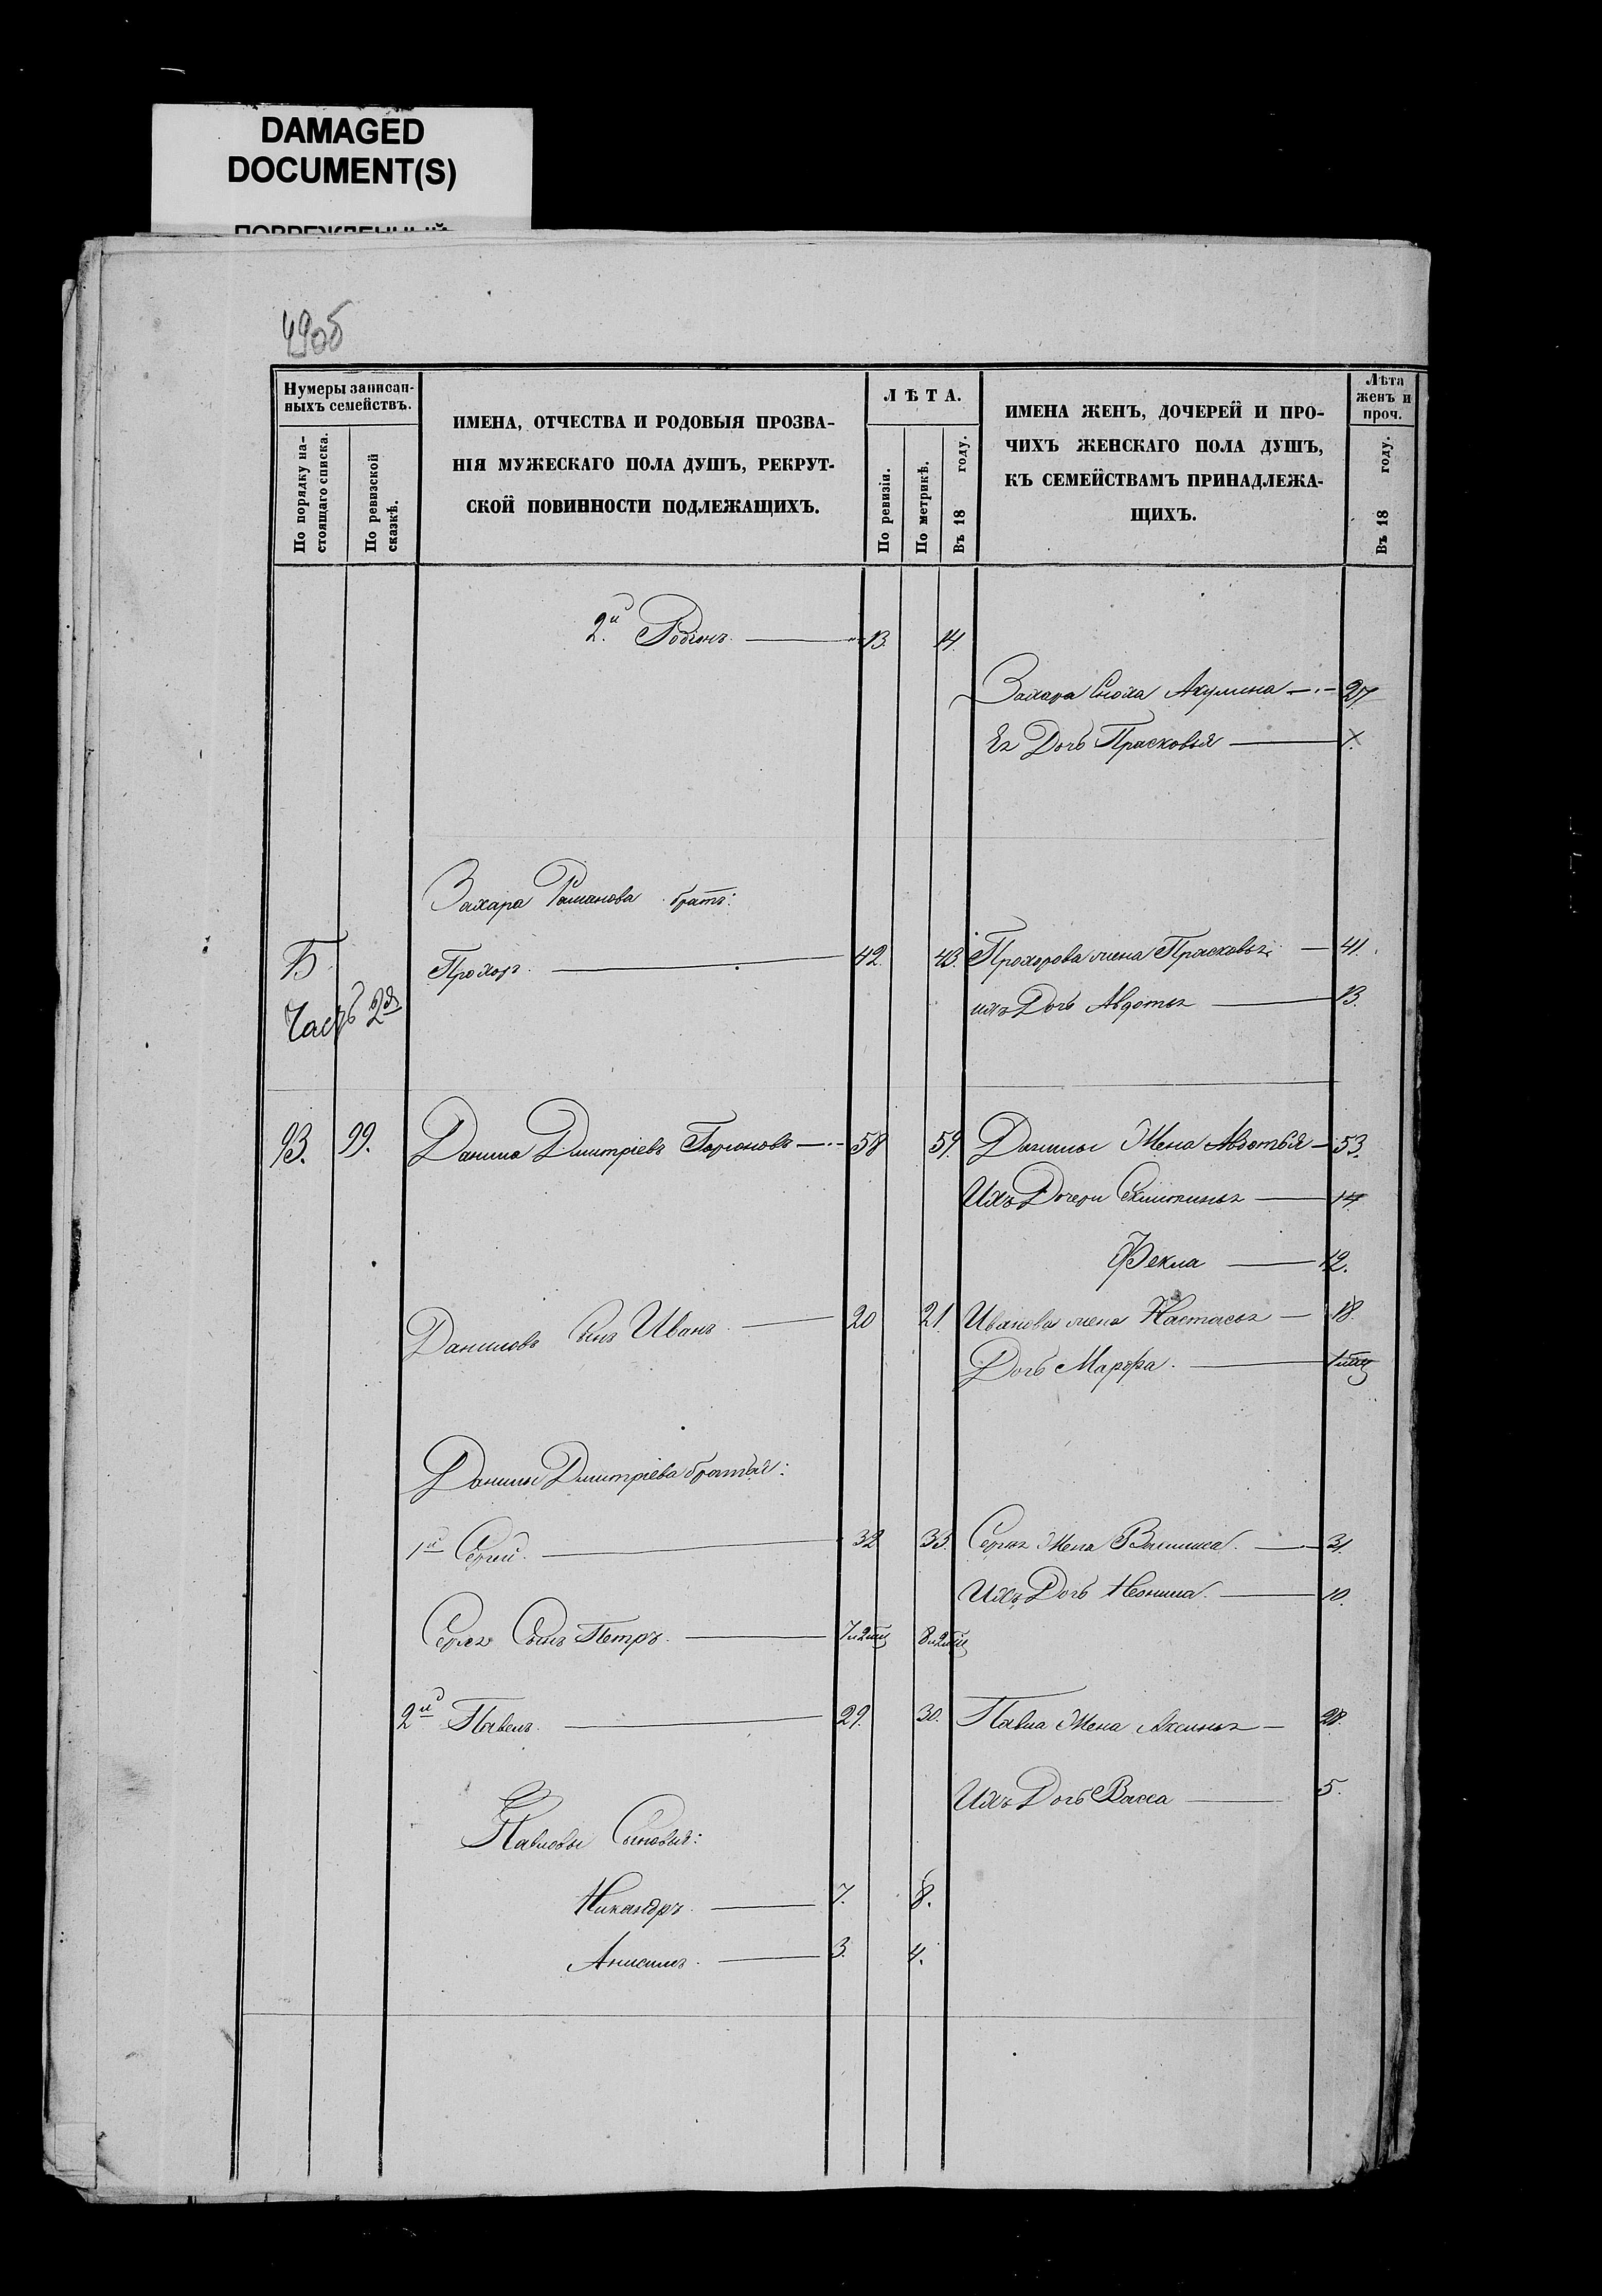 DAMAGED
DOCUMENT(S)
ПОВРЕЖДЕННЫЙ
49об
Нумеры записан-
ныхъ семействъ.
По порядку на-
стоящаго списка.
По ревизской
сказкѣ.
ИМЕНА, ОТЧЕСТВА И РОДОВЫЯ ПРОЗВА-
НІЯ МУЖЕСКАГО ПОЛА ДУШЪ, РЕКРУТ-
СКОЙ ПОВИННОСТИ ПОДЛЕЖАЩИХЪ.
ЛѢТА.
По ревизіи.
По метрикѣ.
Въ 18 году.
ИМЕНА ЖЕНЪ, ДОЧЕРЕЙ И ПРО-
ЧИХЪ ЖЕНСКАГО ПОЛА ДУШЪ,
КЪ СЕМЕЙСТВАМЪ ПРИНАДЛЕЖА-
ЩИХЪ.
Лѣта
женъ и
проч.
Въ 18 году.
2й Родіонъ 13. 14.
Захара Сноха Акулина 27
Ея Дочь Прасковья
Захара Романова братъ:
Б Прохоръ 42. 43. Прохорова жена Прасковья 41.
Часть 2я ихъ Дочь Авдотья 13.
93. 99. Данила Дмитріевъ 58 59. Данилы Жена Авдотья 53.
Ихъ Дочери 14
Фекла 12.
Даниловъ Сынъ Иванъ 20 21. Иванова жена Настасья 18.
Дочь Марфа.
Данилы Дмитріева братья:
1й Сергей. 32 33. Сергея Жена 31.
Ихъ Дочь Неонила. 10.
Сергея Сынъ Петръ. 7и2мц 8и2мц
2й Павелъ. 29. 30. Павла Жена Аксинья 28.
Ихъ Дочь Васса 5.
Павловы Сыновья:
Никандръ 7. 8.
Анисимъ 3. 4.